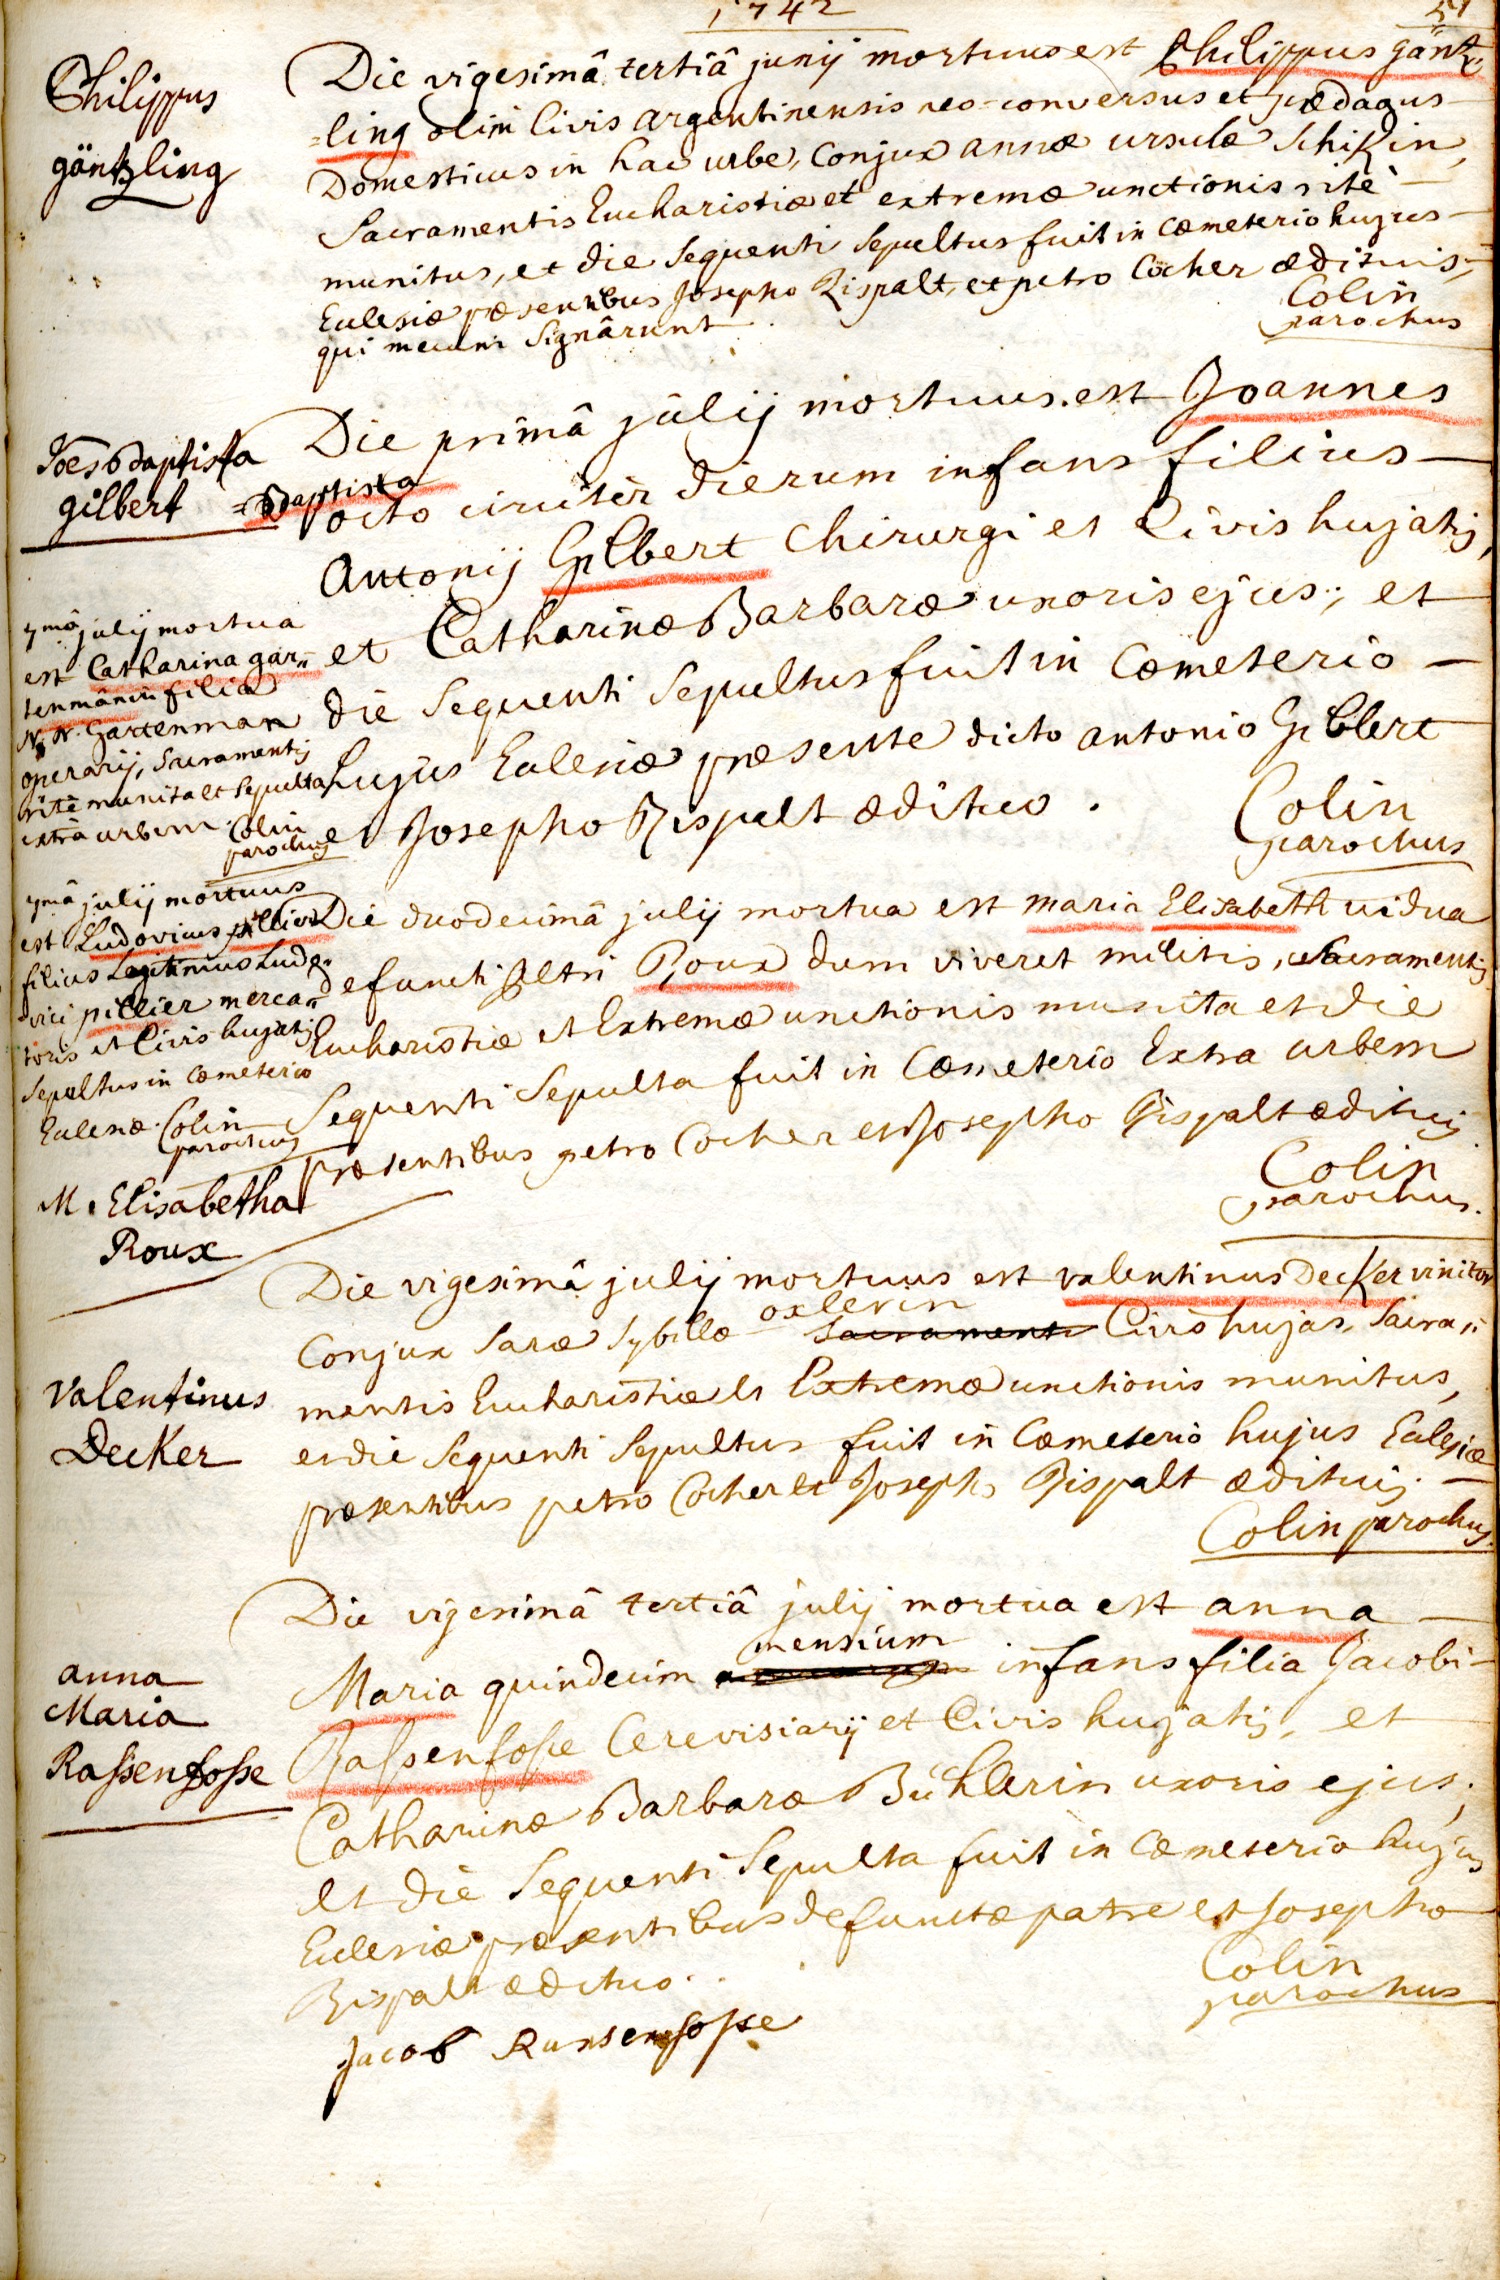 1742
51
Philippus
gäntzling
Die vigesimâ tertiâ junij mortuus est Philippus gäntz=
=ling olim Civis argentinensis neo-conversus et pædagus
Domesticus in hac urbe, Conjux annæ ursulæ Schikin,
Sacramentis Eucharistiæ et extremæ unctionis rite
munitus, et die sequenti Sepultus fuit in Cæmeterio hujus
Ecclesiæ præsentibus Josepho Rispalt, et petro Cocher ædituis,
qui mecum Signârunt.
Colin
parochus
Joes Baptista
gilbert
Die primâ julij mortuus est Joannes
=Baptista
octo circiter dierum infans filius
Antonij Gilbert Chirurgi et Civis hujatis,
et Catharinæ Barbaræ uxoris ejus, et
die Sequenti Sepultus fuit in Cæmeterio
hujus Ecclesiæ præsente dicto antonio Gilbert
et Josepho Rispalt ædituo.
Colin
parochus
7mâ julij mortua
est Catharina gar=
tenmänin filia
N. N. Gartenman
operarij, Sacramentis
ritè munita et Sepulta
extrà urbem. Colin
parochus
7mâ julij mortuus
est Ludovicus pillier
filius Legitimus Ludo=
vici pillier merca=
toris et Civis hujatis
Sepultus in Cæmeterio
Ecclesiæ. Colin
parochus
M. Elisabetha
Roux
Die duodecimâ julij mortua est maria Elisabeth vidua
defuncti Roux dum viveret militis, Sacramentis
Eucharistiæ et Extremæ unctionis munita et die
Sequenti Sepulta fuit in Cæmeterio Extra urbem
præsentibus petro Cocher et Josepho Rispalt ædituis
Colin
parochus.
Valentinus
Decker
Die vigesimâ julij mortuus est valentinus Decker vinitor
oxlerin
Conjux Saræ Sybillæ Sacramentis Civis hujas, Sacra=
mentis Eucharistiæ et Extremæ unctionis munitus,
et die Sequenti Sepultus fuit in Cæmeterio hujus Ecclesiæ
præsentibus petro Cocher et Josepho Rispalt ædituis.
Colin parochus
anna
Maria
Rassenfosse
Die vigesimâ tertiâ julij mortua est anna
mensium
Maria quindecim infans filia Jacobi
Rassenfosse Cerevisiarij et Civis hujatis, et
Catharinæ Barbaræ Bühlerin uxoris ejus;
et die Sequenti Sepulta fuit in Cæmeterio hujus
Ecclesiæ præsentibus defunctæ patre et Josepho
Rispalt ædituo.
Colin
parochus
Jacob Ransenfosse